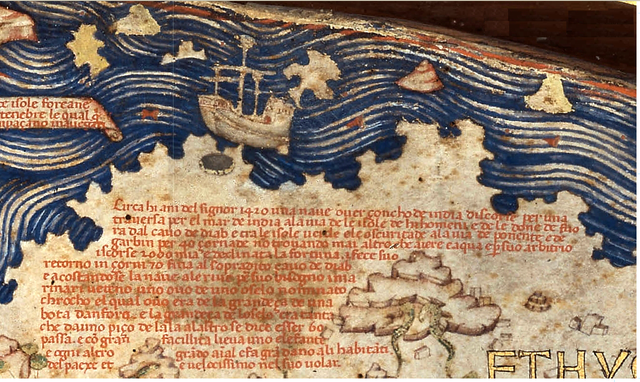 te isole foreane
tenebre le qual
Circa hi ani del signor 1420 una naue ouer çoncho de india discorse per una
trauersa per el mar de india a la uia de le isole de hi homeni e de le done de fuo
ra dal cauo de diab e tra le isole uerde e le oscuritade a la uia de ponente e de
garbin per 40 çornade no trouando mai altro che aiere e aqua e p suo arbitrio
iscorse 2000 mia e declinata la fortuna i fece suo
retorno in çorni 70 fina al sopradito cauo de diab
E acostandose la naue a le riue p suo bisogno i ma
rinari uedeno uno ouo de uno oselo nominato
chrocho el qual ouo era de la grandeça de una
bota d anfora e la grandeça de l oselo era tanta
che da uno piço de l ala a l altro se dice esser 60
passa e co gran facillita lieua uno elefante
e ogni altro gra dano a li habitati
del paexe et e uelocissimo nel suo uolar
ETHYO